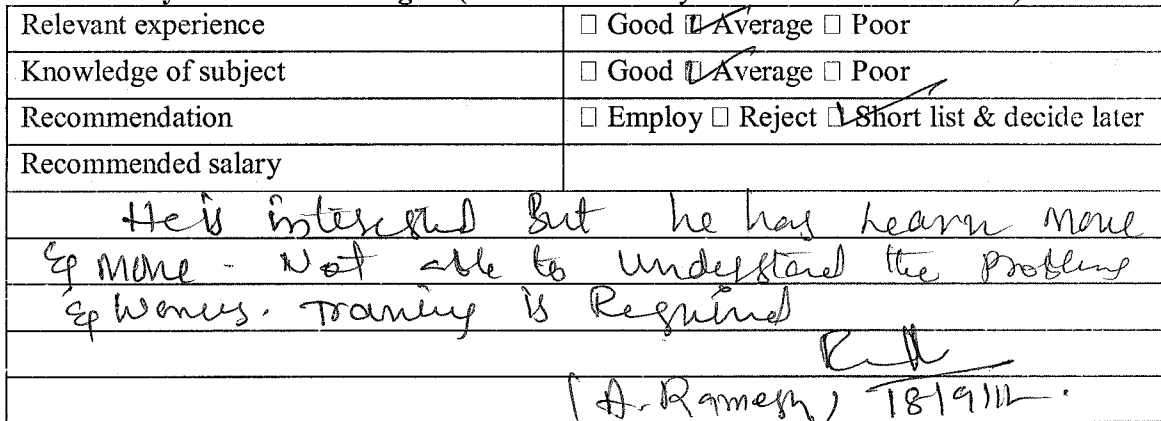 Relevant experience ☐ Good ☑ Average ☐ Poor
Knowledge of subject ☐ Good ☑ Average ☐ Poor
Recommendation ☐ Employ ☐ Reject ☑ Short list & decide later
Recommended salary
He is interested But he has Learn More
& More - Not able to Understand the problems
& . Training is Required
(A. Ramesh) 18/9/12.